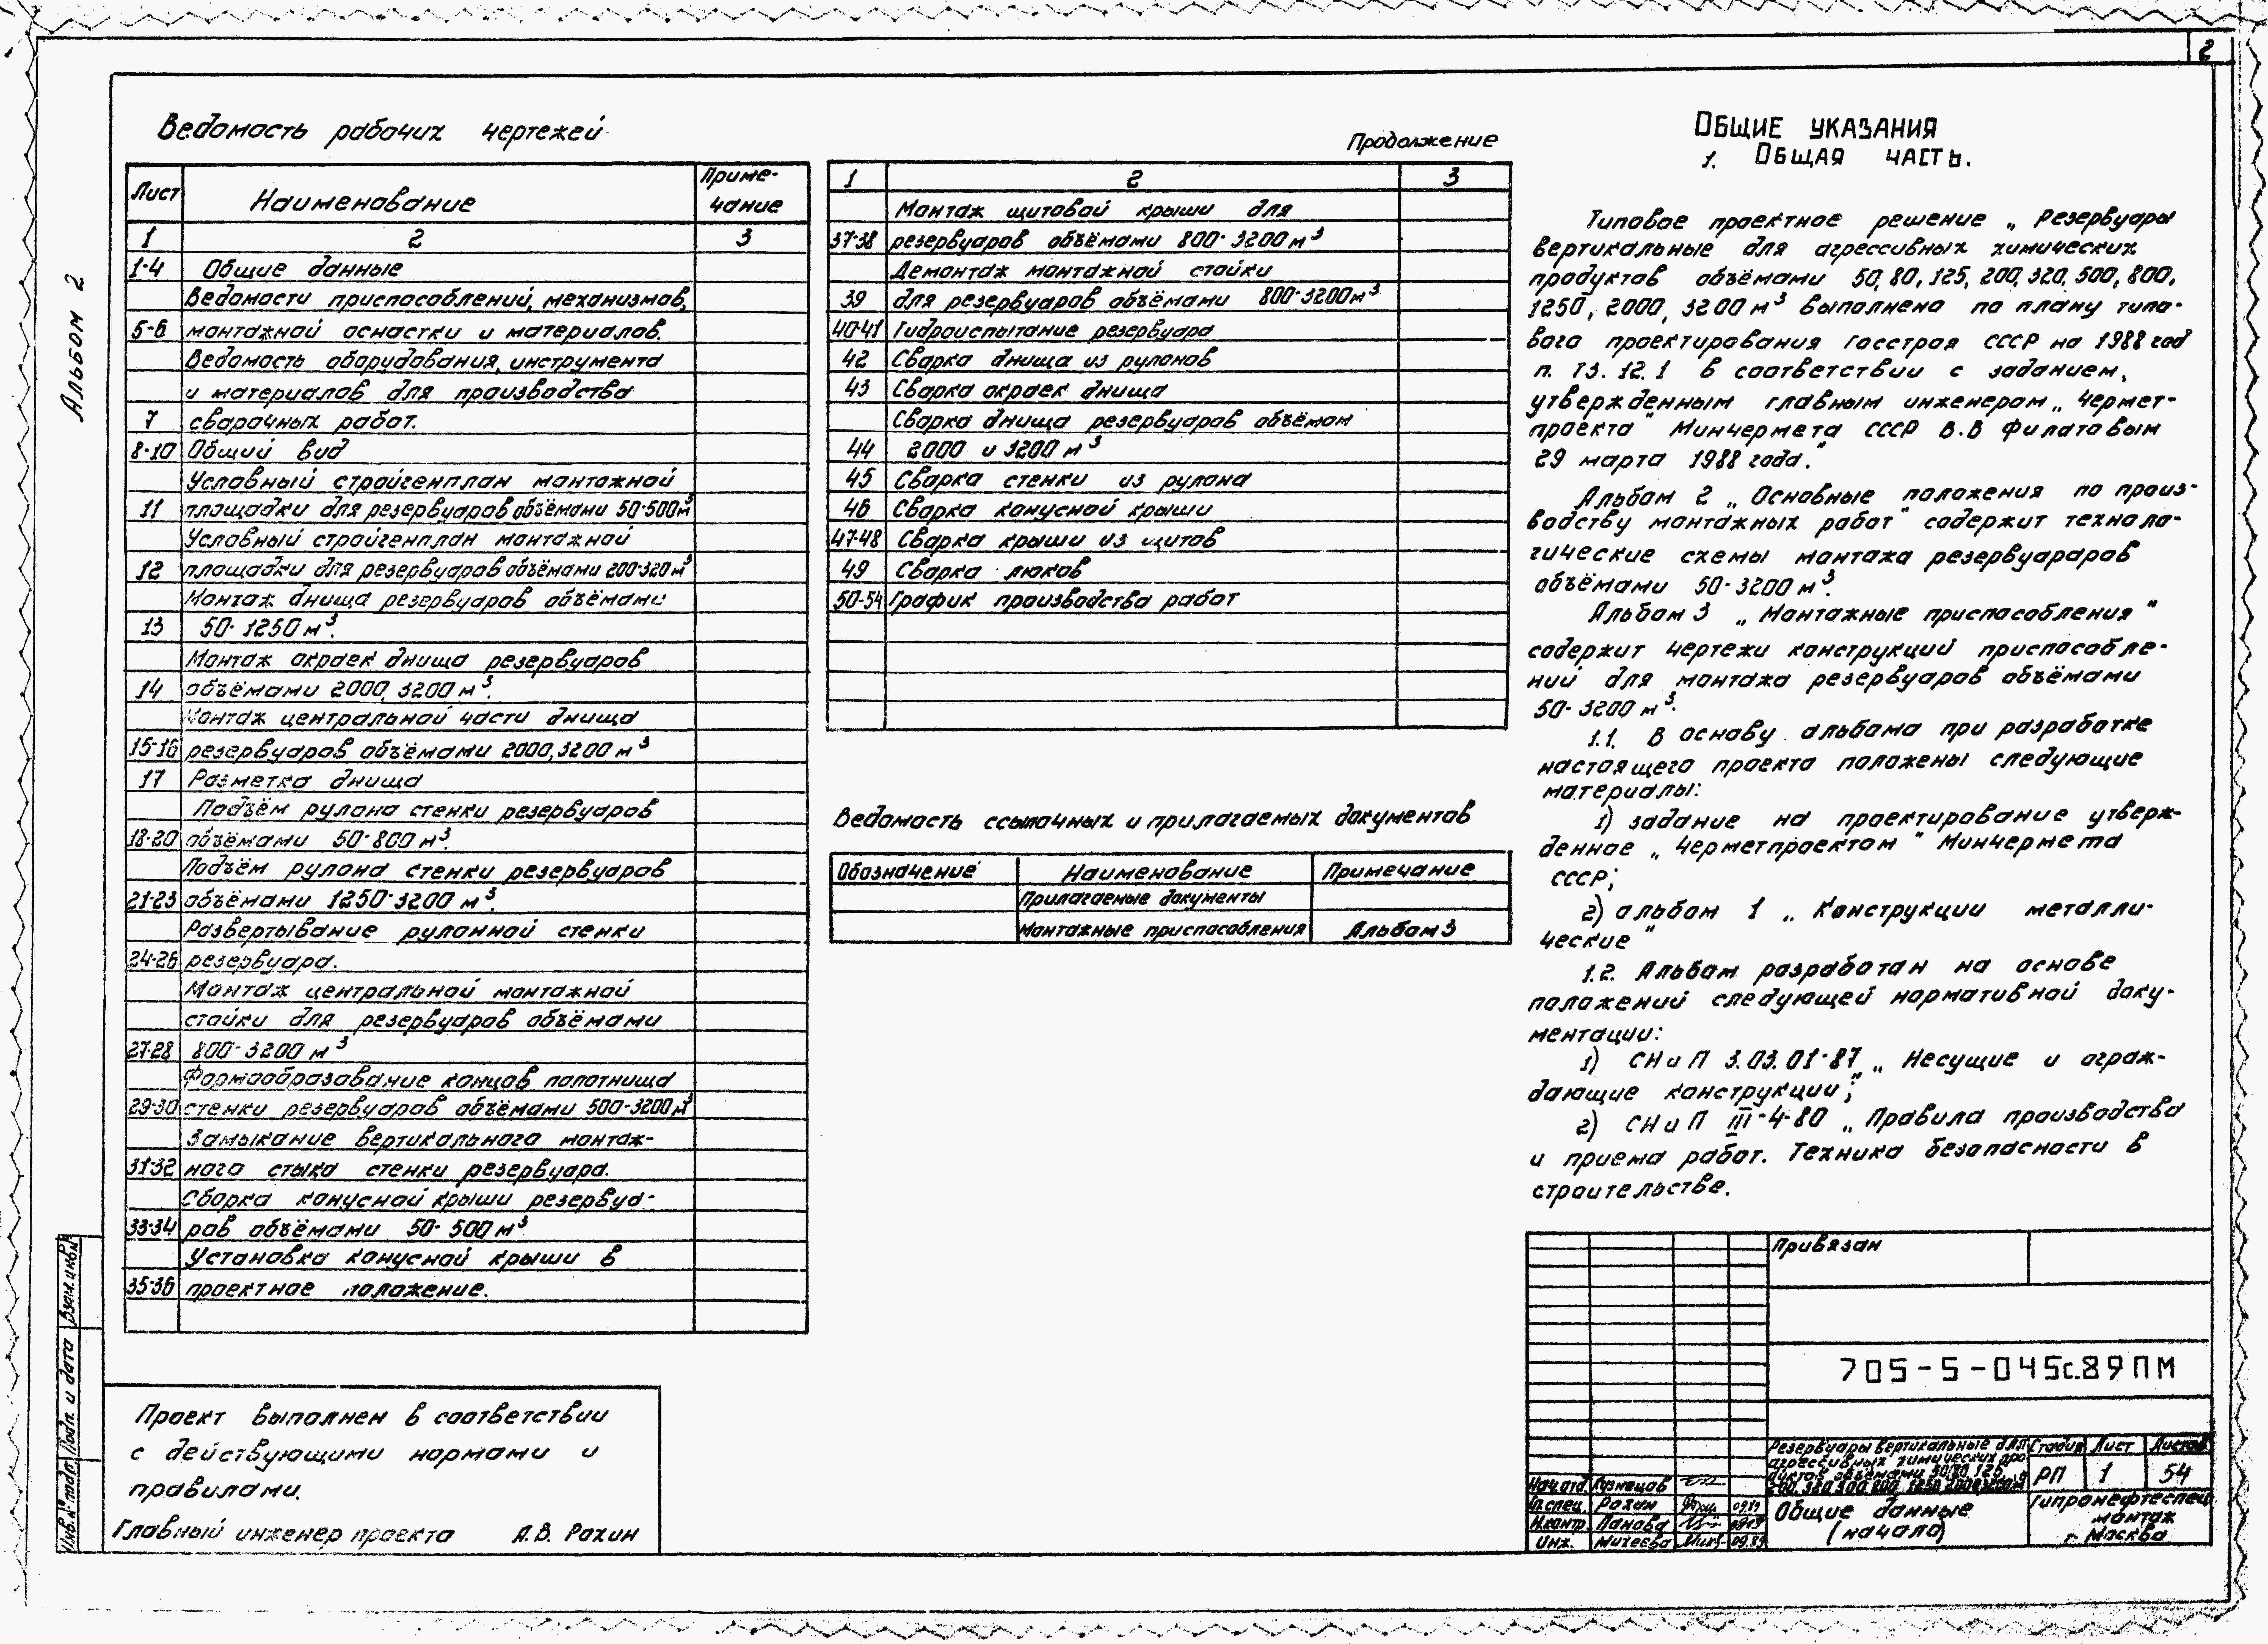 2
Альбом 2
Ведомость рабочих чертежей
Лист Наименование Приме-
чание
1 2 3
1-4 Общие данные
Ведомости приспособлений, механизмов,
5-6 монтажной оснастки и материалов.
Ведомость оборудования, инструмента
и материалов для производства
7 сварочных работ.
8-10 Общий вид
Условный стройгенплан монтажной
11 площадки для резервуаров объёмами 50-500м³
Условный стройгенплан монтажной
12 площадки для резервуаров объёмами 200-320м³
Монтаж днища резервуаров объёмами
13 50-1250м³.
Монтаж окраек днища резервуаров
14 объёмами 2000, 3200м³.
Монтаж центральной части днища
15-16 резервуаров объёмами 2000, 3200м³
17 Разметка днища
Подъём рулона стенки резервуаров
18-20 объёмами 50-800м³.
Подъём рулона стенки резервуаров
21-23 объёмами 1250-3200м³.
Развертывание рулонной стенки
24-26 резервуара.
Монтаж центральной монтажной
стойки для резервуаров объёмами
27-28 800-3200м³
Формообразование концов полотнища
29-30 стенки резервуаров объёмами 500-3200м³
Замыкание вертикального монтаж-
31-32 ного стыка стенки резервуара.
Сборка конусной крыши резервуа-
33-34 ров объёмами 50-500м³
Установка конусной крыши в
35-36 проектное положение.
Продолжение
1 2 3
Монтаж щитовой крыши для
37-38 резервуаров объёмами 800-3200м³
Демонтаж монтажной стойки
39 для резервуаров объёмами 800-3200м³
40-41 Гидроиспытание резервуара
42 Сварка днища из рулонов
43 Сварка окраек днища
Сварка днища резервуаров объёмом
44 2000 и 3200м³
45 Сварка стенки из рулона
46 Сварка конусной крыши
47-48 Сварка крыши из щитов
49 Сварка люков
50-54 График производства работ
Ведомость ссылочных и прилагаемых документов
Обозначение Наименование Примечание
Прилагаемые документы
Монтажные приспособления Альбом 3
Общие указания
1. Общая часть.
Типовое проектное решение „Резервуары
вертикальные для агрессивных химических
продуктов объёмами 50, 80, 125, 200, 320, 500, 800,
1250, 2000, 3200м³ выполнено по плану типо-
вого проектирования Госстроя СССР на 1988 год
п. Т3.12.1 в соответствии с заданием,
утвержденным главным инженером „Чермет-
проекта" Минчермета СССР В.В Филатовым
29 марта 1988 года."
Альбом 2 „Основные положения по произ-
водству монтажных работ" содержит техноло-
гические схемы монтажа резервуараров
объёмами 50-3200м³.
Альбом 3 „Монтажные приспособления"
содержит чертежи конструкций приспособле-
ний для монтажа резервуаров объёмами
50-3200м³.
1.1. В основу альбома при разработке
настоящего проекта положены следующие
материалы:
1) задание на проектирование утверж-
денное „Черметпроектом" Минчермета
СССР;
2) альбом 1 „Конструкции металли-
ческие"
1.2. Альбом разработан на основе
положений следующей нормативной доку-
ментации:
1) СНиП 3.03.01-87 „Несущие и ограж-
дающие конструкции";
2) СНиП III-4-80 „Правила производства
и приема работ. Техника безопасности в
строительстве.
Проект выполнен в соответствии
с действующими нормами и
правилами.
Главный инженер проекта А.В. Рахин
Взам.инв.№
Подп. и дата
Инв.№ подл.
Привязан
705-5-045с.89ПМ
Резервуары вертикальные для
агрессивных химических про-
дуктов объёмами 50, 80, 125,
200, 320, 500, 800, 1250, 2000, 3200м³
Стадия Лист Листов
РП 1 54
Нач.отд. Кузнецов
Гл.спец. Рахин 09.89
Н.контр. Панова 09.89
Инж. Михеева 09.89
Общие данные
(начало)
Гипронефтеспец
монтаж
г. Москва